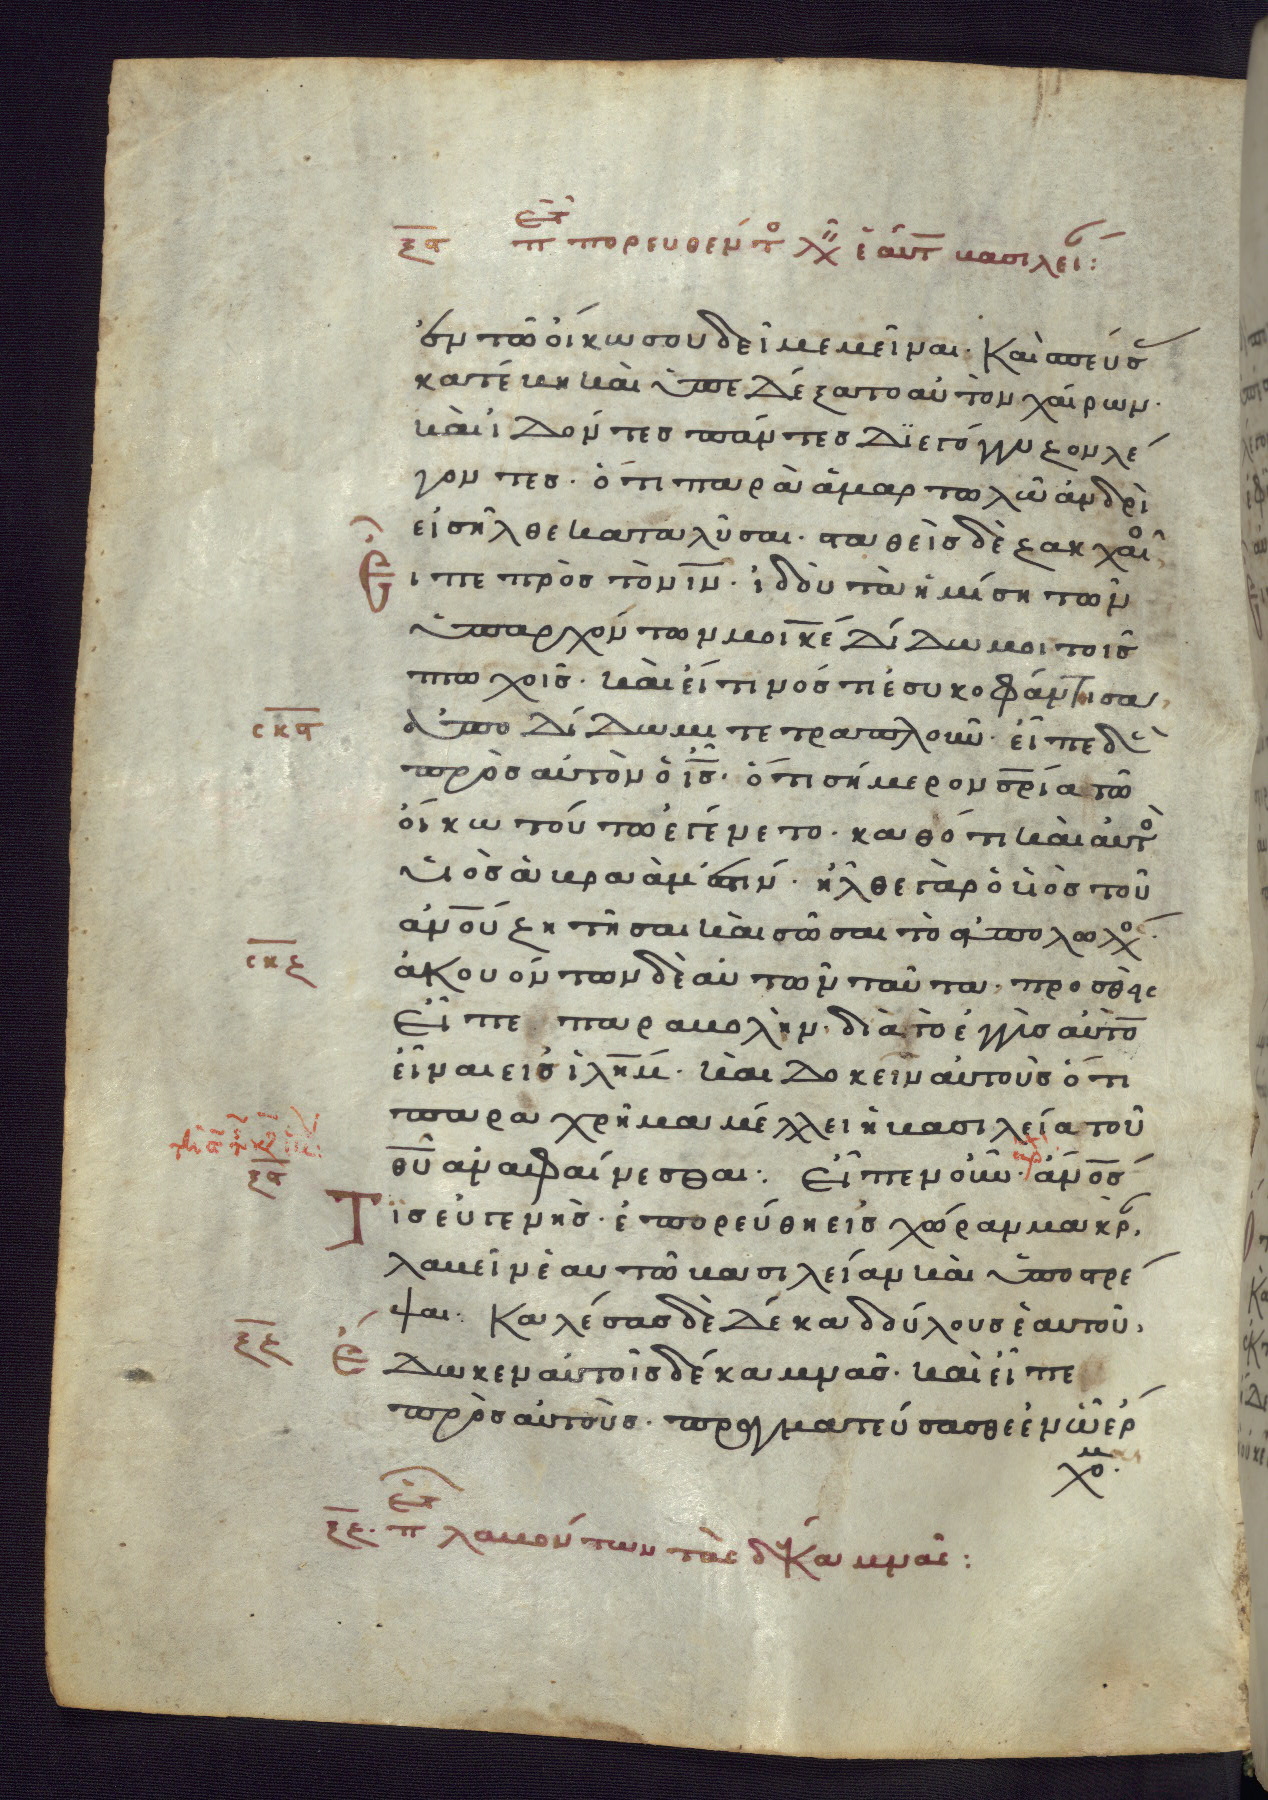 ξϛ περὶ τοῦ πορευθέντο λαβεῖν ἑαυτ βασιλεί:
ἐν τῶ οἴκω σου δεῖ με μεῖναι· Καὶ σπεύσ
κατέβη καὶ ὑπεδέξατο αὐτὸν χαίρων·
καὶ ἰδόντες πάντες διεγόγγυζον λέ
γοντες· ὅτι παρὰ ἁμαρτωλῶ ἀνδρὶ
εἰσῆλθε καταλῦσαι· σταθεὶς δὲ ζακχαῖο
Εἶπε πρὸς τὸν ιν· ἰδοὺ τὰ ἡμίση τῶν
ὑπαρχόντων μοι κε δίδωμι τοῖς
πτωχοῖς· καὶ εἴ τινός τι ἐσυκοφάντησα,
σκϛ ἀποδίδωμι τετραπλοῦν· εἶπε δὲ
πρὸς αὐτὸν ὁ ις· ὅτι σήμερον σρία τῶ
οἴκω τούτω ἐγένετο· καθότι καὶ αὐτο
υἱὸς ἀβραάμ ἐστιν· ἦλθε γὰρ ὁ υἱὸς τοῦ
ανου ζητῆσαι καὶ σῶσαι τὸ ἀπολωλο·
σκζ ἀκουόντων δὲ αὐτῶν ταῦτα· προσθεὶς
Εἶπε παραβολήν· διὰ τὸ ἐγγὺς αὐτὸ
εἶναι εἰς ιλημ· καὶ δοκεῖν αὐτοὺς ὅτι
παραχρῆμα μέλλει ἡ βασιλεία τοῦ
ξϛ θυ ἀναφαίνεσθαι: Εἶπεν οὖν· ανος
Τὶς εὐγενὴς· ἐπορεύθη εἰς χώραν μακρ,
λαβεῖν ἑαυτῶ βασιλείαν καὶ ὑποστρέ
ψαι· Καλέσας δὲ δέκα δούλους ἑαυτοῦ,
ξζ Ἔδωκεν αὐτοῖς δέκα μνᾶς· καὶ εἶπε
πρὸς αὐτοὺς· πραγματεύσασθε ἐν ὧ ἔρ
χομ·
ξζ· περὶ τῶν λαβόντων τὰς δέκα μνᾶς: